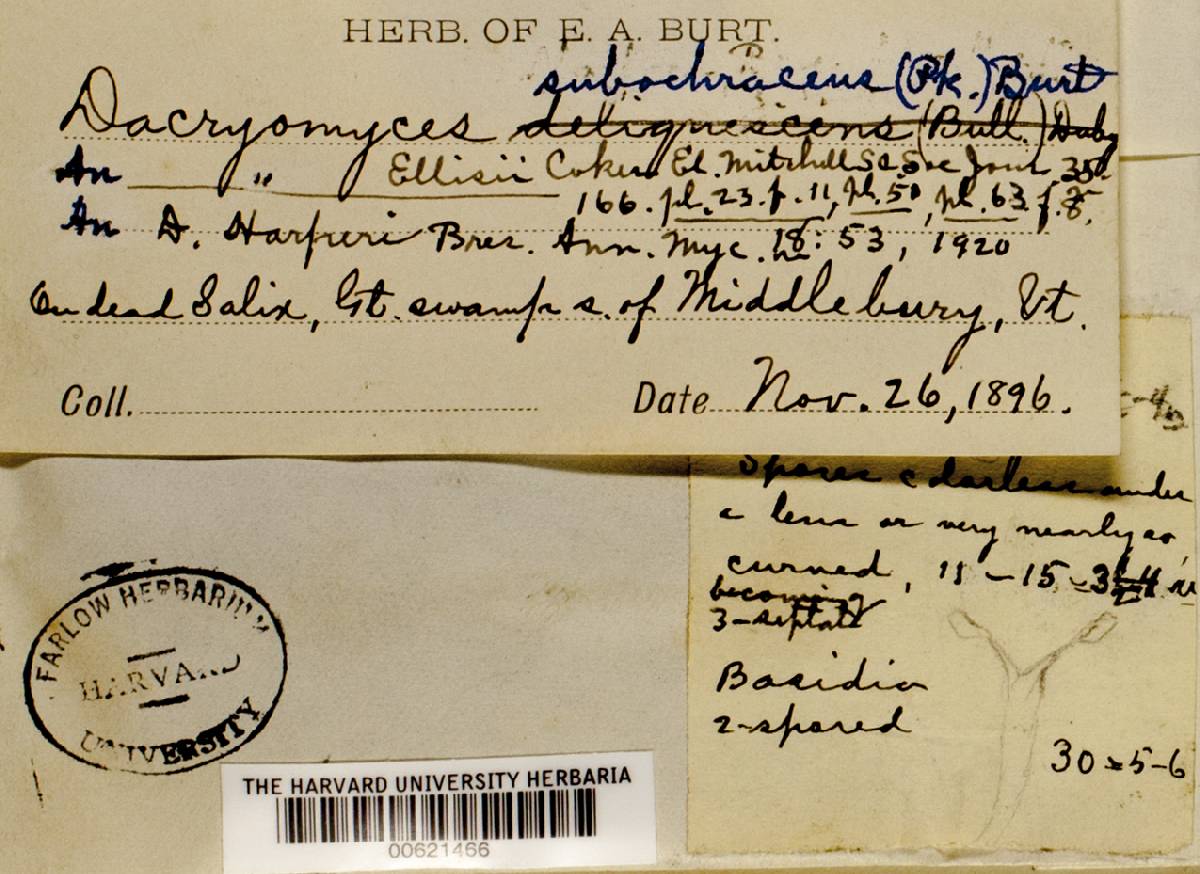 HERB. OF E. A. BURT.
subochraceus (Pk.) Burt
Dacryomyces deliquescens (Bull.) Duby
An " Ellisii Coker El. Mitchell Sc. Soc Jour 35:
166. pl. 23. f. 11, pl. 50, pl. 63. f. 8.
An D. Harperi Bres. Ann. Myc. 18: 53, 1920
On dead Salix, Gt. swamp s. of Middlebury, Vt.
Coll. Date Nov. 26, 1896.
Spores colorless under
a lens or very nearly so,
curved, 11-15 = 3
becoming
3-septate
Basidia
2-spored
30 = 5-6
FARLOW HERBARIUM
HARVARD
UNIVERSITY
THE HARVARD UNIVERSITY HERBARIA
00621466